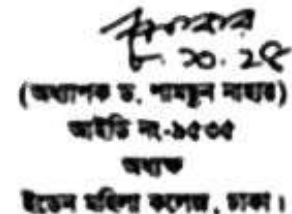 ৮.১০.২৫
(অধ্যাপক ড. শামছুন নাহার)
আইডি নং-৯৫৩৫
অধ্যক্ষ
ইডেন মহিলা কলেজ, ঢাকা।